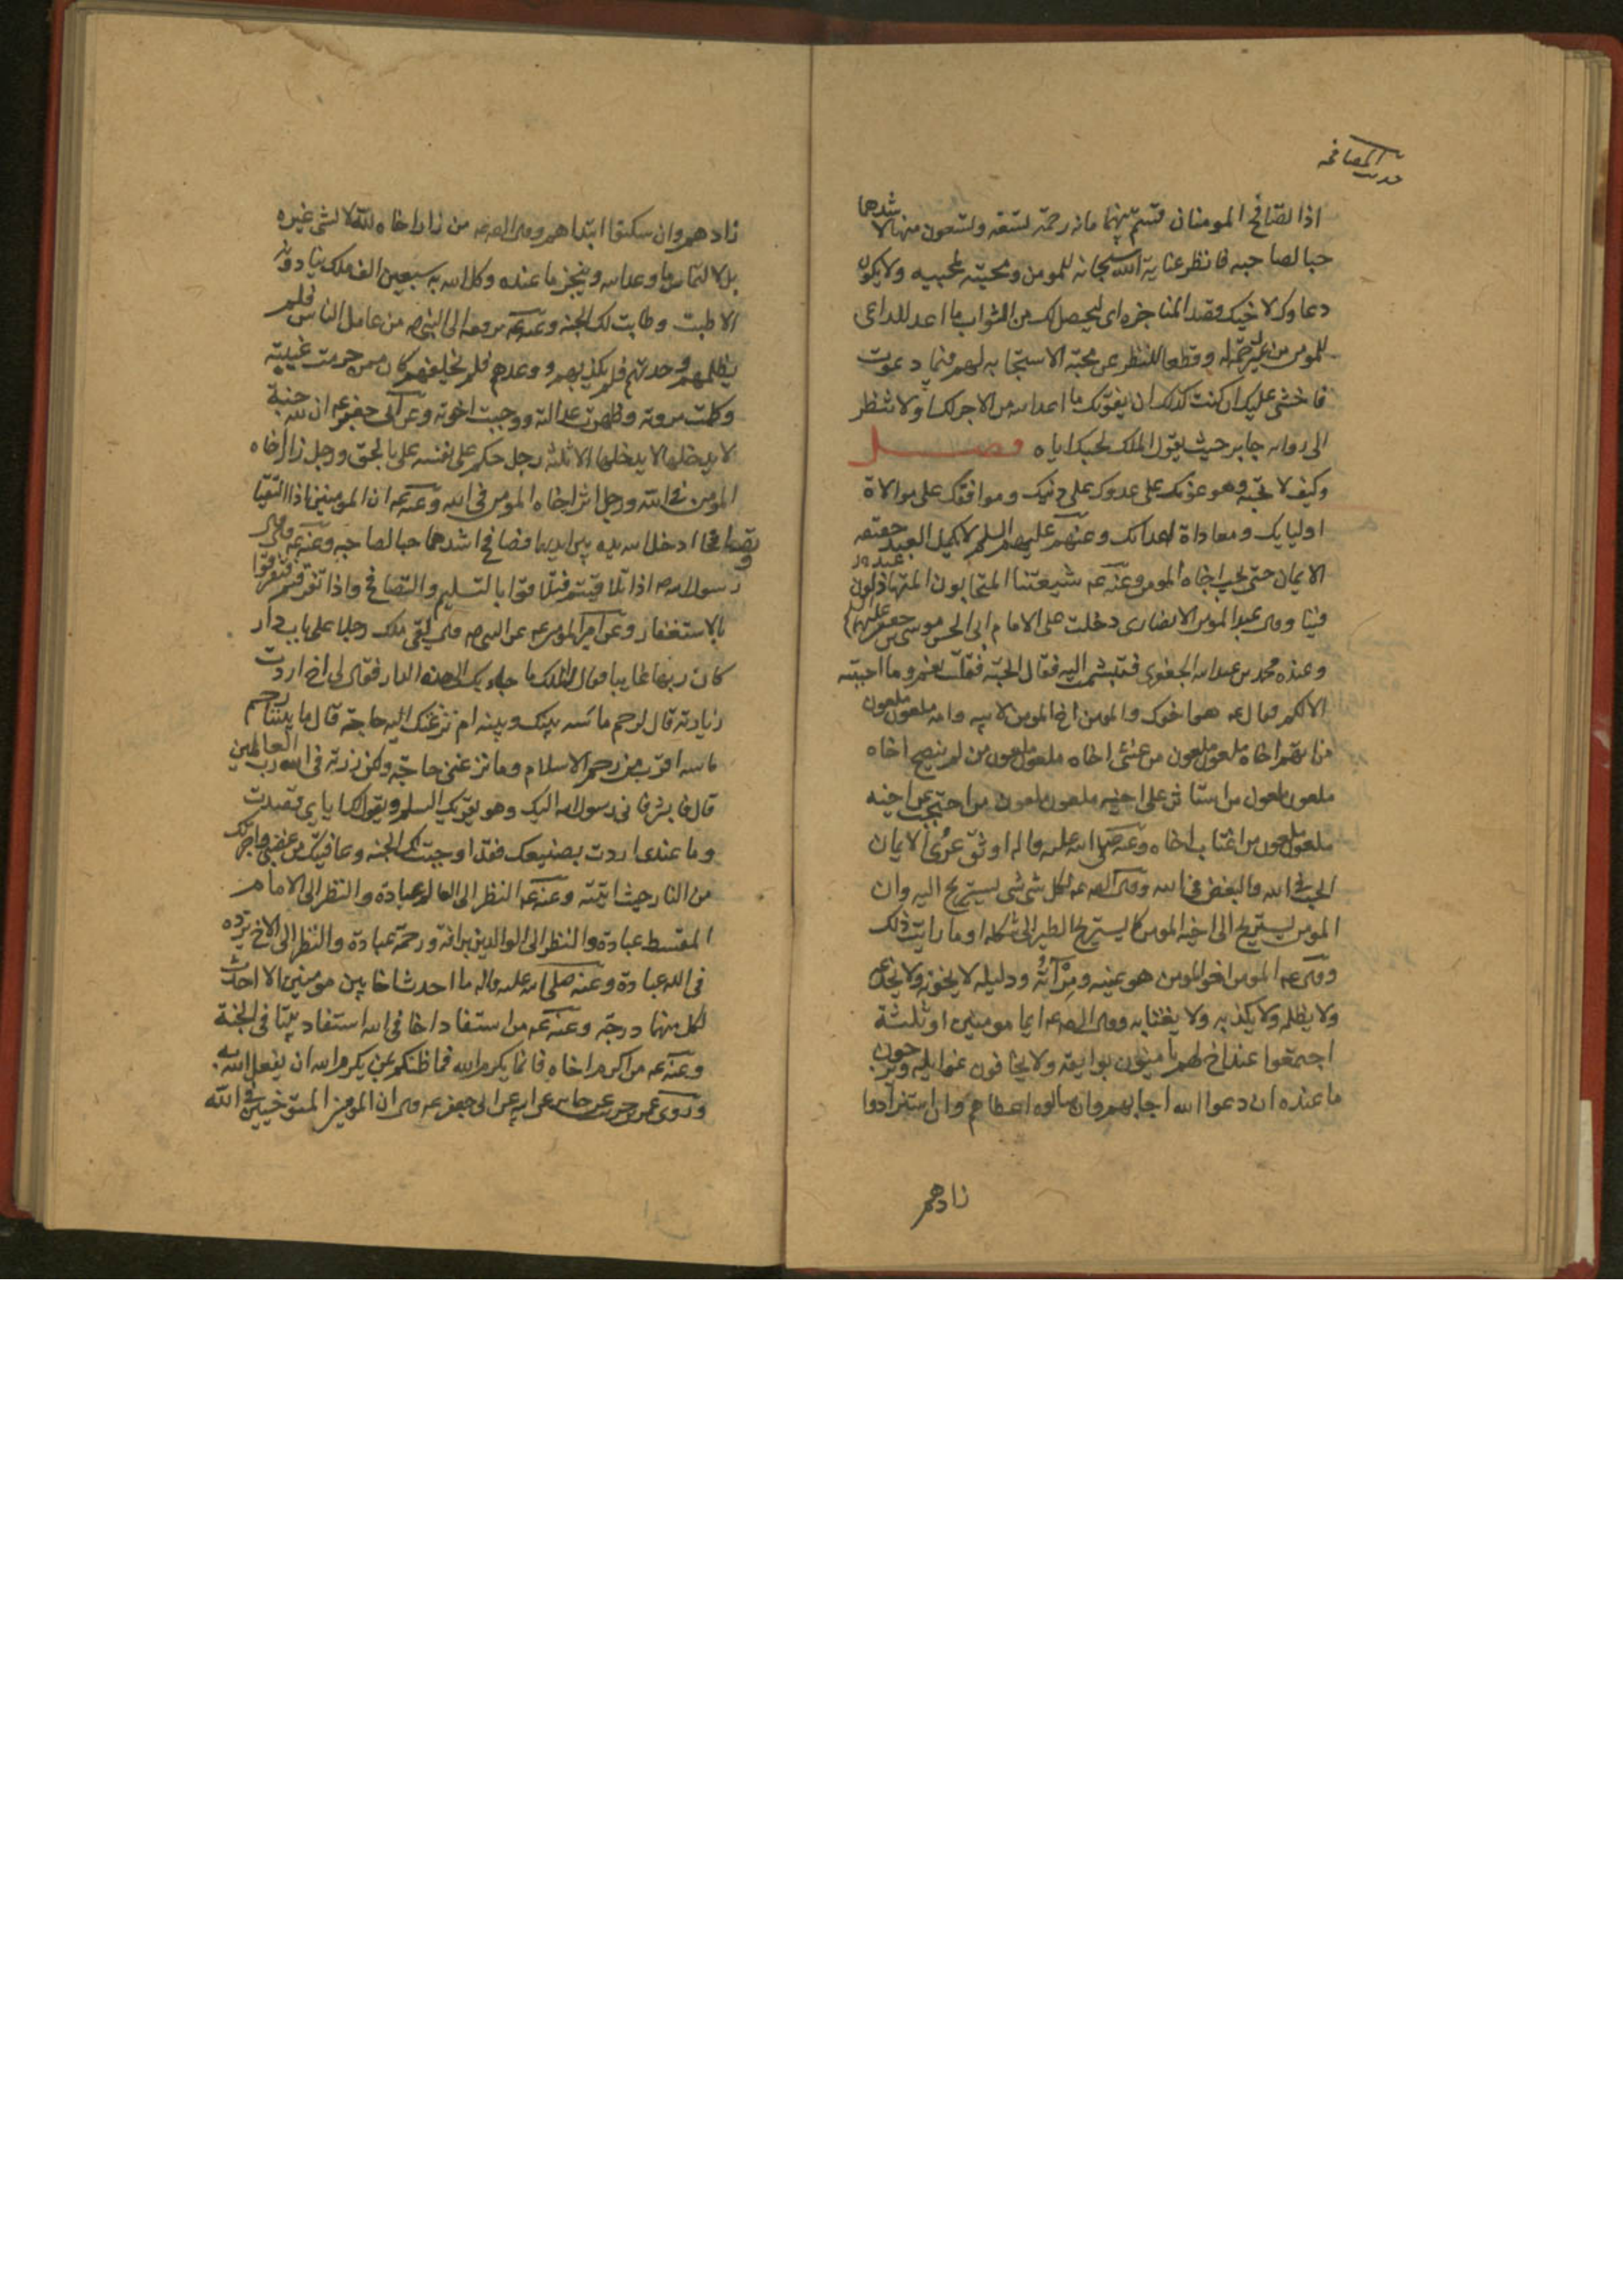 حديث المصافحه
اذا تصافح المومنان قسم بينهما مائه رحمة تسعه وتسعون منها لاشدهما
حبا لصاحبه فانظر عناية الله سبحانه للمومن ومحبته لمحبيه ولا يكون
دعاوك لاخيك وقصد المناجزه اى ليحصل لك من الثواب ما اعد للداعى
للمومن من وقطعا للنظر عن محبة الاستجابه لهم فيما دعوت
فاخشى عليك ان كنت كذلك ان يفوتك ما اعد الله من الاجر لك اولا تنظر
الى روايه جابر حيث يقول الملك لحبك اياه فصل
وكيف لا تحبه وهو عونك على عدوك على دينك وموافقك على موالاة
اوليايك ومعاداة اعدائك وعنهم عليهم السلم لا يكمل العبد حقيقة
الايمان حتى يحب اخاه المومن وعنه عه شيعتنا المتحابون المتباذلون
فينا وقال عبد المومن الانصارى دخلت على الامام ابى الحسن موسى بن جعفر عليهما
وعنده محمد بن عبد الله الجعفرى فتبسمت اليه فقال اتحبه فقلت نعم وما احببته
الا لكم فقال عه هو اخوك والمومن اخ المومن لابيه وامه ملعون ملعون
من اتهم اخاه ملعون ملعون من غش اخاه ملعون ملعون من لم ينصح اخاه
ملعون ملعون من استاثر على اخيه ملعون ملعون من احتجب عن اخيه
ملعون ملعون من اغتاب اخاه وعنه صلى الله عليه واله اوثق عرى الايمان
الحب فى الله والبغض فى الله وقال الص عه لكل شى شى يستريح اليه وان
المومن يستريح الى اخيه المومن كما يستريح الطير الى شكله او ما رايت ذلك
وقال عه المومن اخو المومن هو عينه ومرآته ودليله لا يخونه ولا يخدعه
ولا يظلمه ولا يكذبه ولا يغتابه وقال الص عه ايما مومنين او ثلثة
اجتمعوا عند اخ لهم يامنون بوايقه ولا يخافون غوايله ويرجون
ما عنده ان دعوا الله اجابهم وان سالوه اعطاهم وان استزادوا
زادهم
زادهم وان سكتوا ابتداهم وقال الص عه من زار اخاه لله لا لشى غيره
بل لالتماس ما وعد الله وينجز ما عنده وكل الله به سبعين الف ملك ينادونه
الا طبت وطابت لك الجنه وعنه عه يرفعه الى النبى ص من عامل الناس فلم
يظلمهم وحدثهم فلم يكذبهم ووعدهم فلم يخلفهم كان ممن حرمت غيبته
وكملت مروته وظهرت عدالته ووجبت اخوته وعن ابى جعفر عه ان لله جنة
لا يدخلها الا ثلثه رجل حكم على نفسه بالحق ورجل زار اخاه
المومن فى الله ورجل اثر اخاه المومن فى الله وعنه عه ان المومنين اذا التقيا
وتصافحا ادخل الله يده بين ايديهما فصافح اشدهما حبا لصاحبه وعنه عه قال
رسول الله ص اذا تلاقيتم فتلاقوا بالتسليم والتصافح واذا تفرقتم فتفرقوا
بالاستغفار وعن امير المومنين عه عن النبى ص قال لقى ملك رجلا على باب دار
كان ربها غايبا فقال الملك ما جاء بك الى هذه الدار فقال لى اخ اردت
زيارته قال لرحم ماسه بينك وبينه ام نزعتك اليه حاجة قال ما بيننا رحم
ماسه اقرب من رحم الاسلام وما نزعتنى حاجة ولكن زرته فى الله رب العالمين
قال فابشر فانى رسول الله اليك وهو يقريك السلم ويقول لك اياى قصدت
وما عندى اردت بصنيعك فقد اوجبت لك الجنه وعافيتك من غضبى واجرتك
من النار حيث اتيته وعنه عه النظر الى العالم عبادة والنظر الى الامام
المقسط عبادة والنظر الى الوالدين برافة ورحمة عبادة والنظر الى الاخ توده
فى الله عبادة وعنه صلى الله عليه واله ما احدث اخا بين مومنين الا احدث
لكل منهما درجة وعنه عه من استفاد اخا فى الله استفاد بيتا فى الجنة
وعنه عه من اكرم اخاه فانما يكرم الله فما ظنكم بمن يكرم الله ان يفعل الله به
وروى عن جابر عن ابيه عن ابى جعفر عه قال ان المومنين المتواخيين فى الله